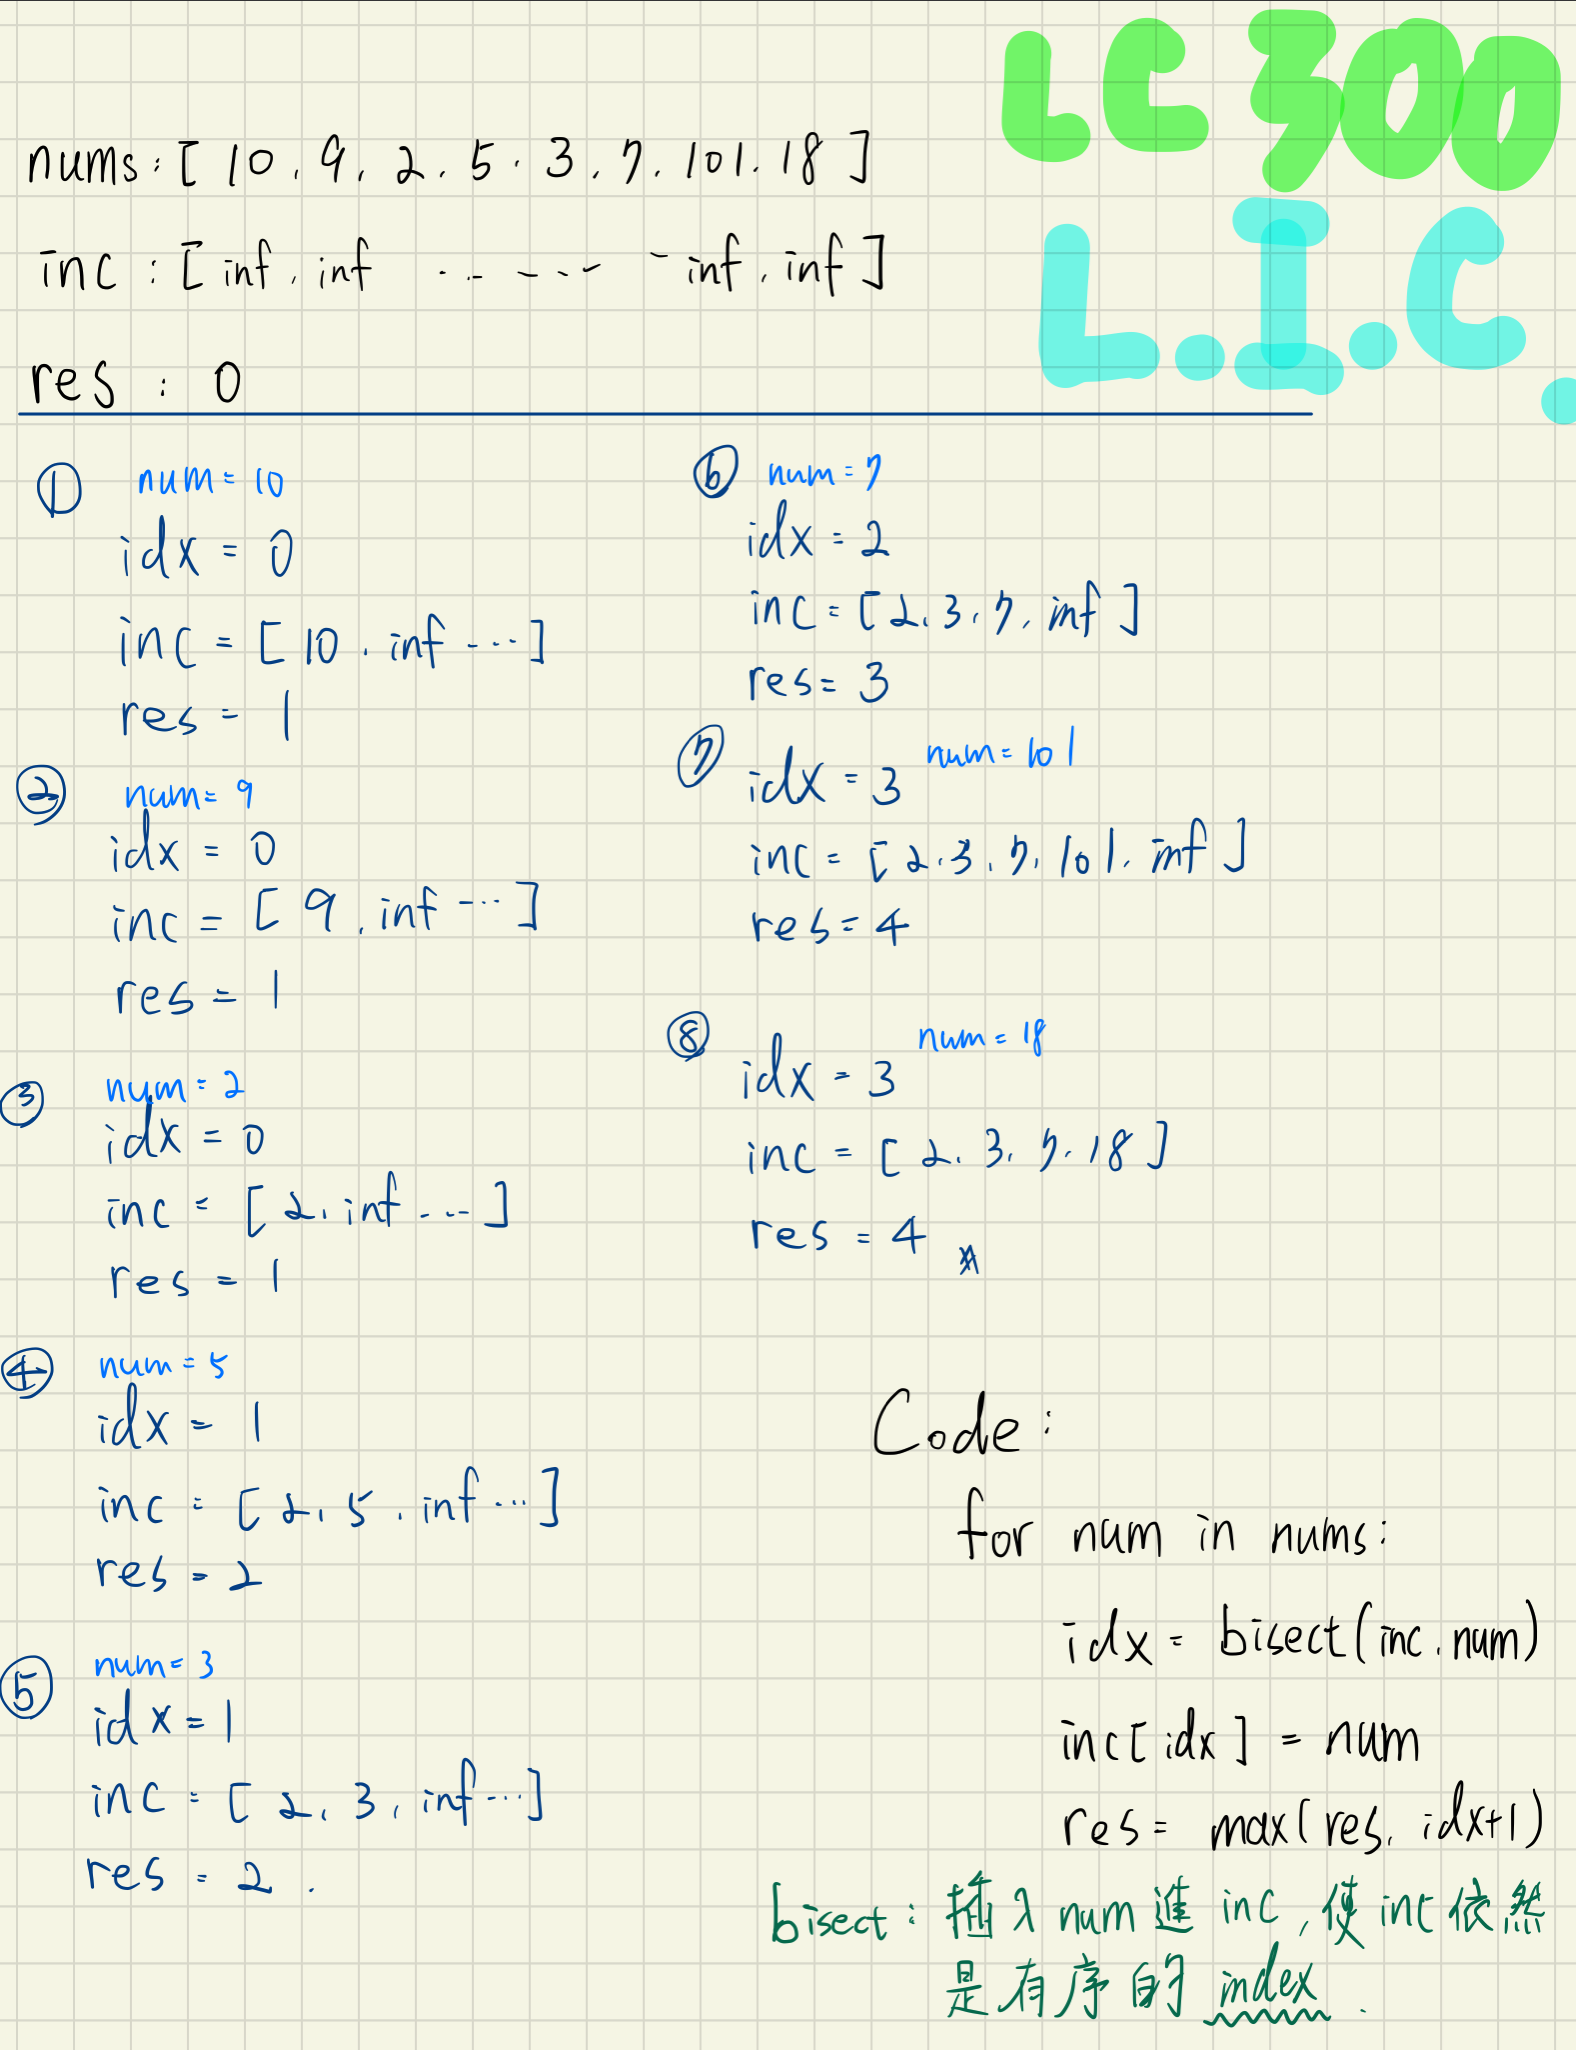 LC 300
L.I.C.
nums : [ 10, 9, 2, 5, 3, 7, 101, 18 ]
inc : [ inf, inf ........ inf, inf ]
res : 0
① num = 10
idx = 0
inc = [ 10, inf ... ]
res = 1
② num = 9
idx = 0
inc = [ 9, inf ... ]
res = 1
③ num = 2
idx = 0
inc = [ 2, inf ... ]
res = 1
④ num = 5
idx = 1
inc = [ 2, 5, inf ... ]
res = 2
⑤ num = 3
idx = 1
inc = [ 2, 3, inf ... ]
res = 2.
⑥ num = 7
idx = 2
inc = [ 2, 3, 7, inf ]
res = 3
⑦ num = 101
idx = 3
inc = [ 2, 3, 7, 101, inf ]
res = 4
⑧ num = 18
idx = 3
inc = [ 2, 3, 7, 18 ]
res = 4
Code :
for num in nums:
idx = bisect(inc, num)
inc[idx] = num
res = max(res, idx+1)
bisect : 插入 num 進 inc, 使 inc 依然
是有序的 index.